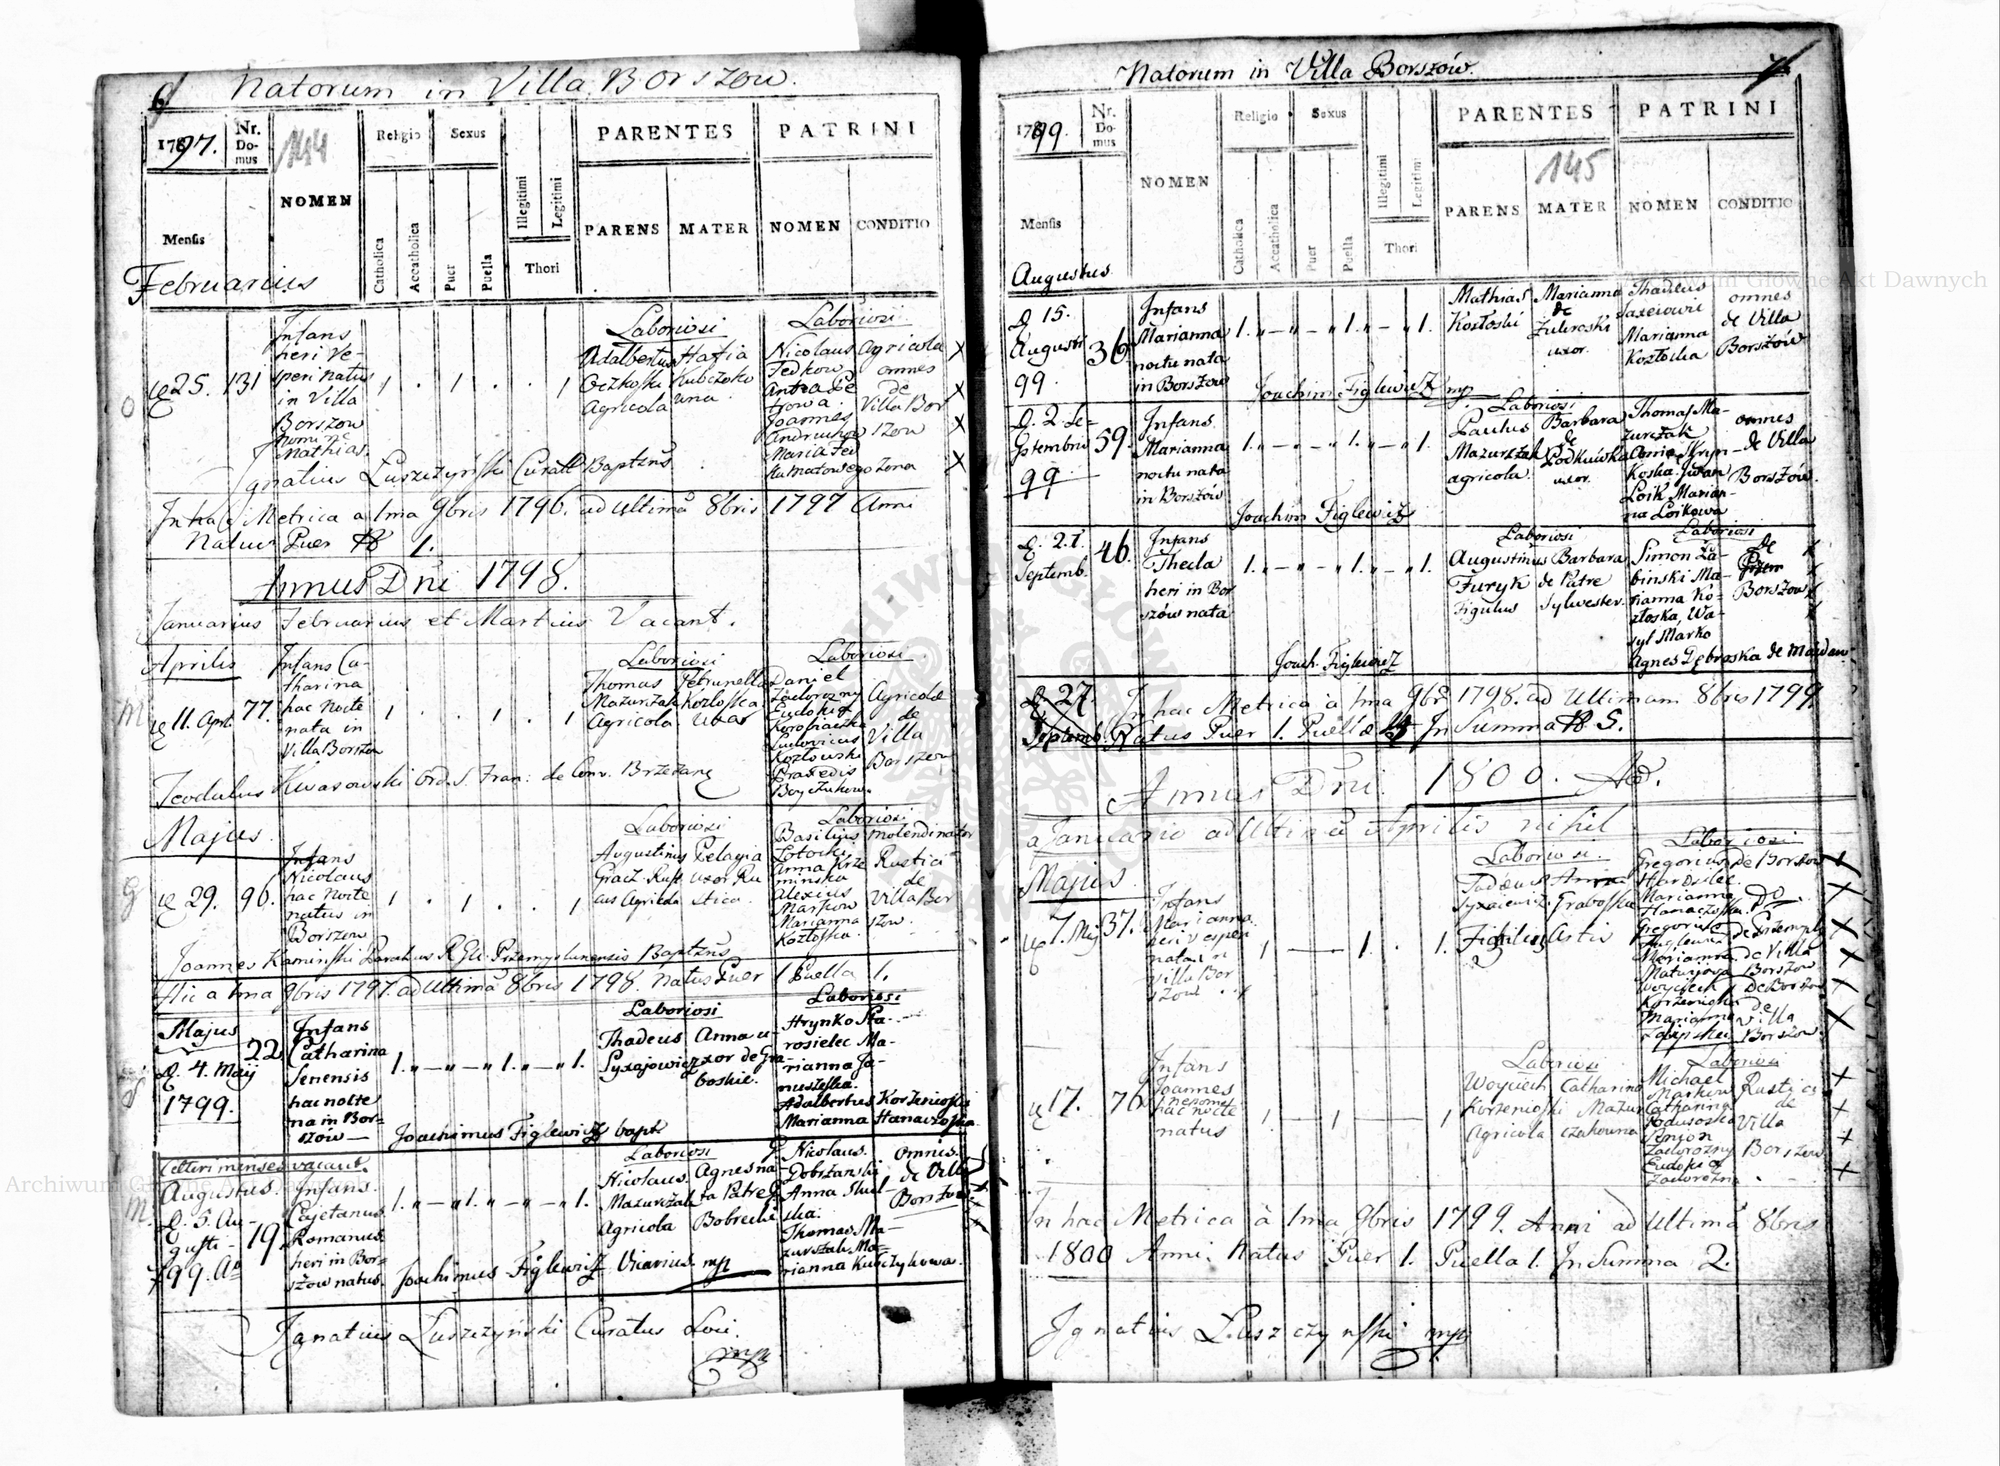 6
Natorum in Villa Borszow.
1797.
Nr. Domus
144
NOMEN
Religio
Sexus
PARENTES
PATRINI
Mensis
Catholica
Accatholica
Puer
Puella
Illegitimi
Legitimi
Thori
PARENS
MATER
NOMEN
CONDITIO
Februarius
25. 131
Infans
heri Ve-
speri natus
in Villa
Borszow
nomine
Mathias.
1 . 1 . . 1
Laboriosi
Adalbertus
Oczkoski
Agricola
Laboriosi
Nicolaus
Fedkow
Joannes
Agricolae
omnes
de
Villa Bor
szow
Ignatius Luszczyński Curat Baptzns
In hac Metrica a 1ma 9bris 1796. ad Ultima 8bris 1797 Anni
Natus Puer 1.
Annus Dni 1798.
Januarius Februarius et Martius Vacant.
Aprilis
11. Apr. 77.
Infans Ca-
tharina
hac Nocte
nata in
Villa Borszow
1 . . 1 . 1
Laboriosi
Thomas
Mazurzak
Agricola
Petrunella
Kozloska
Uxor
Laboriosi
Daniel
Zadorozny
Ludovicus
Kozlowski
Praxedis
Agricolae
de
Villa
Borszow
Teodulus Kwasowski Ord. S. Fran: de Conv. Brzezan
Majus
29. 96.
Infans
Nicolaus
hac Nocte
natus in
Borszow
1 . 1 . . 1
Laboriosi
Augustinus
Agricola
Pelagia
uxor Ru
stica.
Laboriosi
Basilius
Lotocki
Anna Krze
minska
Alexius
Markow
Marianna
Kozloska.
Molendinator
Rustici
de
Villa Bor
szow.
Joannes Kaminski Parochus Przemyslanensis Baptzns
Hic a 1ma 9bris 1797. ad Ultima 8bris 1798. Natus Puer 1 Puella 1.
Majus
D. 4. Maij
1799.
22
Infans
Catharina
Senensis
hac nocte
na in Bor-
szów
1. „ — „ 1. „ — „ 1.
Laboriosi
Thadeus
Syxajowicz
Anna u-
xor de Gra
boskie.
Laboriosi
Hrynko Ha-
rosielec Ma-
rianna
Adalbertus Korzenioski
Marianna Hanaczoska.
Joachimus Figlewicz bapt
Caeteri menses vacant.
Augustus.
D. 5. Au-
gusti
799. Ao
19.
Infans.
Cajetanus
Romanus.
heri in Bor-
szow natus.
1. „ — „ 1. „ — „ 1.
Laboriosi
Nicolaus
Mazurzak
Agricola
Agnes na-
ta Patre
Bobrecki
Nicolaus.
Dobrzanski
Anna
Thomas Ma-
zurzak. Ma-
rianna Kubczykowa.
Omnis.
de Villa
Borszow
Joachimus Figlewicz Vicarius mp
Ignatius Luszczyński Curatus Loci.
mpp
Natorum in Villa Borszów.
7
1799.
Nr. Domus
NOMEN
Religio
Sexus
PARENTES
PATRINI
145
Mensis
Catholica
Accatholica
Puer
Puella
Illegitimi
Legitimi
Thori
PARENS
MATER
NOMEN
CONDITIO
Augustus
D. 15.
Augusti
99.
36
Infans
Marianna
noctu nata
in Borszow
1. „ — „ — „ 1. „ — „ 1.
Mathias
Kozłoski
Marianna
de
Zuleroski
uxor.
Thadeus
Marianna
Kozłoska
omnes
de Villa
Borszów
Joachim Figlewicz mp
D. 2 Se-
ptembris
99
59.
Infans.
Marianna
noctu nata
in Borszów
1. „ — „ — „ 1. „ — „ 1.
Laboriosi
Paulus
Mazurzak
agricola.
Barbara
de
Podkuwka
uxor.
Thomas Ma-
zurzak
Loik Marian-
na Loikowa
omnes
de Villa
Borszów.
Joachim Figlewicz
D. 21.
Septemb.
46.
Infans
Thecla
heri in Bor
szów nata
1. „ — „ — „ 1. „ — „ 1.
Laboriosi
Augustinus
Furyk
Figulus
Barbara
de Patre
Sylwester.
Laboriosi
Simon Za-
binski Ma-
rianna Ko-
złoska, Wa-
syl Marko
Agnes Dębroska de Majdan
De
Borszów
Joach. Figlewicz
D. 27.
Septemb.
In hac Metrica à 1ma 9br 1798. ad Ultimam 8bris 1799.
Natus Puer 1. Puellae 4 In Summa 5.
Annus Dni. 1800.
a Januario ad Ultima Aprilis nihil
Majus
7. Maj 37.
Infans
Marianna
heri vesperi
nata in
Villa Bor
szow
1 — — 1 . 1.
Laboriosi.
Tadeus
Syxaiewicz
Anna
Graboska
Figulus Artis
Laboriosi
Gregorius de Borszow
Marianna
Hanaczoska
Gregorius
Marianna de Villa
Borszow
Woyciech de Borszow
Korzenioski
Marianna
de
Villa
Borszow
17. 76
Infans
Joannes
Nepomu
hac nocte
natus
1 — 1 — 1
Laboriosi
Woyciech
Korzenioski
Agricola
Catharina
Mazur
czakowna
Laboriosi
Michael
Markow
Catharina
Anton
Zadorozny
Eudokia
Zadorozna
Rustici
de
Villa
Borszow
In hac Metrica à 1ma 9bris 1799. Anni ad Ultima 8bris
1800 Anni. Natus Puer 1. Puella 1. In Summa 2.
Ignatius Luszczyński mpp
Archiwum Główne Akt Dawnych
Archiwum Główne Akt Dawnych